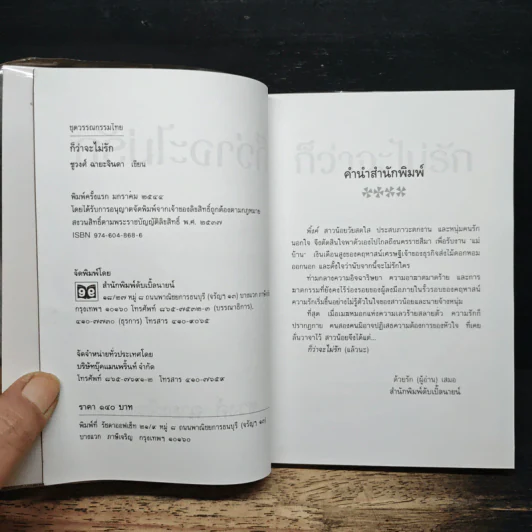 ชุดวรรณกรรมไทย
ก็ว่าจะไม่รัก
ชูวงศ์ ฉายะจินดา เขียน
พิมพ์ครั้งแรก มกราคม ๒๕๔๔
โดยได้รับการอนุญาตจัดพิมพ์จากเจ้าของลิขสิทธิ์ถูกต้องตามกฎหมาย
สงวนสิทธิ์ตามพระราชบัญญัติลิขสิทธิ์ พ.ศ. ๒๕๓๗
ISBN 974-604-868-6
จัดพิมพ์โดย
สำนักพิมพ์ดับเบิ้ลนายน์
๑๘/๒๗ หมู่ ๘ ถนนพาณิชยการธนบุรี (จรัญฯ ๑๓)
กรุงเทพฯ ๑๐๑๖๐ โทรศัพท์ ๘๖๕-๗๕๒๒-๓ (บรรณาธิการ),
๔๑๐-๗๗๓๐ (ธุรการ) โทรสาร ๔๑๐-๙๐๖๕
จัดจำหน่ายทั่วประเทศโดย
บริษัทบุ๊คแมนพริ้นท์ จำกัด
โทรศัพท์ ๘๖๕-๗๖๙๑-๒ โทรสาร ๔๑๐-๗๖๕๙
ราคา ๑๔๐ บาท
พิมพ์ที่ รัชดาออฟเซ็ท ๒๑/๙ หมู่ ๘ ถนนพาณิชยการธนบุรี (จรัญฯ ๑๓)
บางแวก ภาษีเจริญ กรุงเทพฯ ๑๐๑๖๐
คำนำสำนักพิมพ์
พึงค์ สาวน้อยวัยสดใส ประสบภาวะตกงาน และหนุ่มคนรัก
นอกใจ จึงตัดสินใจพาตัวเองไปไกลถึงนครราชสีมา เพื่อรับงาน 'แม่
บ้าน' เงินเดือนสูงของคฤหาสน์เศรษฐีเจ้าของธุรกิจส่งไม้ดอกหอม
ออกนอก และตั้งใจว่านับจากนี้จะไม่รักใคร
ท่ามกลางความอิจฉาริษยา ความอาฆาตมาดร้าย และการ
ฆาตกรรมที่ยังคงไร้ร่องรอยของผู้ลงมือภายในรั้วรอบของคฤหาสน์
ความรักเริ่มขึ้นอย่างไม่รู้ตัวในใจของสาวน้อยและนายจ้างหนุ่ม
ที่สุด เมื่อเมฆหมอกแห่งความเลวร้ายสลายตัว ความรักก็
ปรากฏกาย คนสองคนมิอาจปฏิเสธความต้องการของหัวใจ ที่เคย
ลั่นวาจาไว้ สาวน้อยจึงได้แต่...
ก็ว่าจะไม่รัก (แล้วนะ)
ด้วยรัก (ผู้อ่าน) เสมอ
สำนักพิมพ์ดับเบิ้ลนายน์